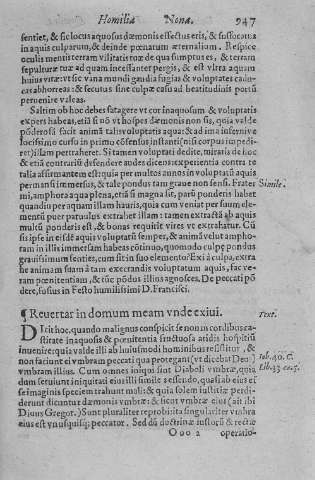 Homilia Nona. 947
sentiet, & sic locus aquosus dæmonis effectus eris, & suffocatus
in aquis culparum, & deinde pœnarum æternalium. Respice
oculis mentis terram vilitatis tuæ de qua sumptus es, & terram
sepulturæ tuæ ad quam incessanter pergis, & est vltra aquam
huius vitæ: vt sic vana mundi gaudia fugias & voluptates
abhorreas: & secutus sine culpæ casu ad beatitudinis portū
peruenire valeas.
Saltim ob hoc debes satagere vt cor inaquosum & voluptatis
expers habeas, etiā si nō vt hospes dæmonis non sis, quia valde
pōderosā facit animā talis voluptatis aqua: & ad ima
locissimo cursu in primo cōsensus instanti (nisi corpus impediret)
illam pertraheret. Si tamen voluptati dedite, miraris de hoc
& etiā contrariū defendere audes dicens: experientia contra
talia assirmantem est: quia per multos annos in voluptatū aquis
permansi immersus, & tale pondus tam graue non sensi. Frater Simile.
mi, amphora aqua plena, etiā si magna sit, parū pōderis habet
quandiu per aquam illam hauris, quia cum veniat per suum elementū
puer paruulus extrahet illam: tamen extractā ab aquis
multū ponderis est, & bonas requirit vires vt extrahatur. Cū
sis ipse in eisdē aquis voluptatū semper, & animā velut amphoram
in illis immersam habeas cōtinuo, quomodo culpę pondus
grauissimum senties, cum sit in suo elemēto? Exi à culpa, extrahe
animam tuam à tam execrandis voluptatum aquis, fac veram
pœnitentiam, & tūc pōdus illius agnosces. De peccati pōdere,
fusius in Festo humillisimi D. Francisci.
¶ Reuertar in domum meam vnde exiui. Text.
Dicit hoc, quando malignus conspicit se non in cordibus castitate
inaquosis & pœnitentia fructuosa aridis hospitiū
inuenire: quia valde illi ab huiusmodi hominibus resistitur, &
non faciunt ei vmbram peccati qua protegant (vt dicebat Deus) Iob. 40. C.
vmbram illius. Cum omnes iniqui sint Diaboli vmbræ, quia
dum seruiunt iniquitati eius illi simile s essendo, quasi ab eius
imaginis speciem trahunt mali: & quia solem iustitiæ perdiderunt
dicuntur dæmonis vmbræ: & licet vmbræ eius (ait ibi
Diuus Gregor.) Sunt pluraliter reprobi: ita singulariter vmbra
eius est vnusquisq; peccator. Sed dū doctrinæ iustorū & rectæ
Ooo 2 operatio-